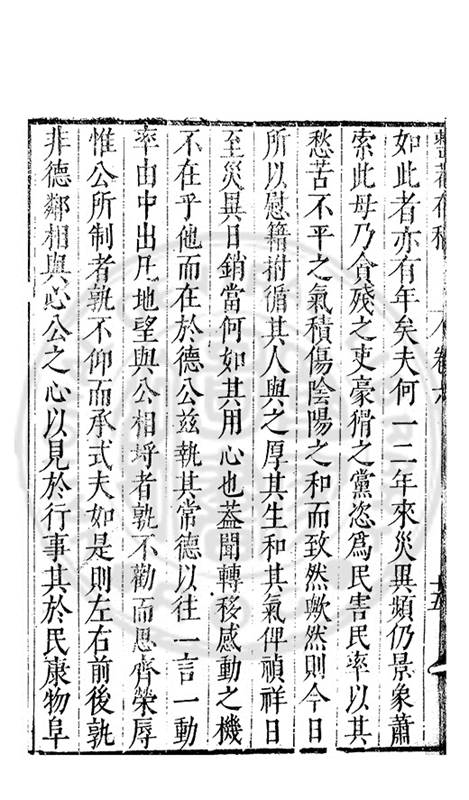 如此者亦有年矣夫何一二年來災異頻仍景象蕭
索此毋乃貪殘之吏豪猾之黨恣爲民害民率以其
愁苦不平之氣積傷陰陽之和而致然歟然則今日
所以慰籍拊循其人與之厚其生和其氣俾禎祥日
至災異日銷當何如其用心也葢聞轉移感動之機
不在乎他而在於德公兹執其常德以往一言一動
率由中出凡地望與公相埒者孰不勸而思齊榮辱
惟公所制者孰不仰而承式夫如是則左右前後孰
非德鄰相與心公之心以見於行事其於民康物阜